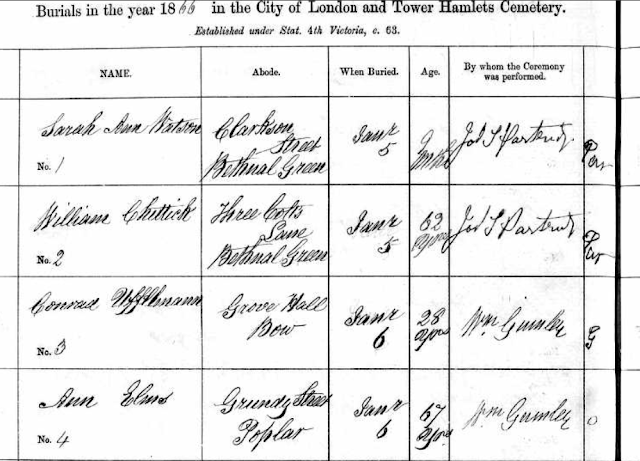 Burials in the year 1866 in the City of London and Tower Hamlets Cemetery.
Established under Stat. 4th Victoria, c. 63.
NAME. Abode. When Buried. Age. By whom the Ceremony was performed.
Sarah Ann Watson
No. 1
Clarkson
Street
Bethnal Green
Jany
5
9
Mths
William Chittick
No. 2
Three Colts
Lane
Bethnal Green
Jany
5
62
Years
Conrad Uffelmann
No. 3
Grove Hall
Bow
Jany
6
28
Years
Wm Gumley
Ann Elms
No. 4
Grundy Street
Poplar
Jany
6
67
Years
Wm Gumley